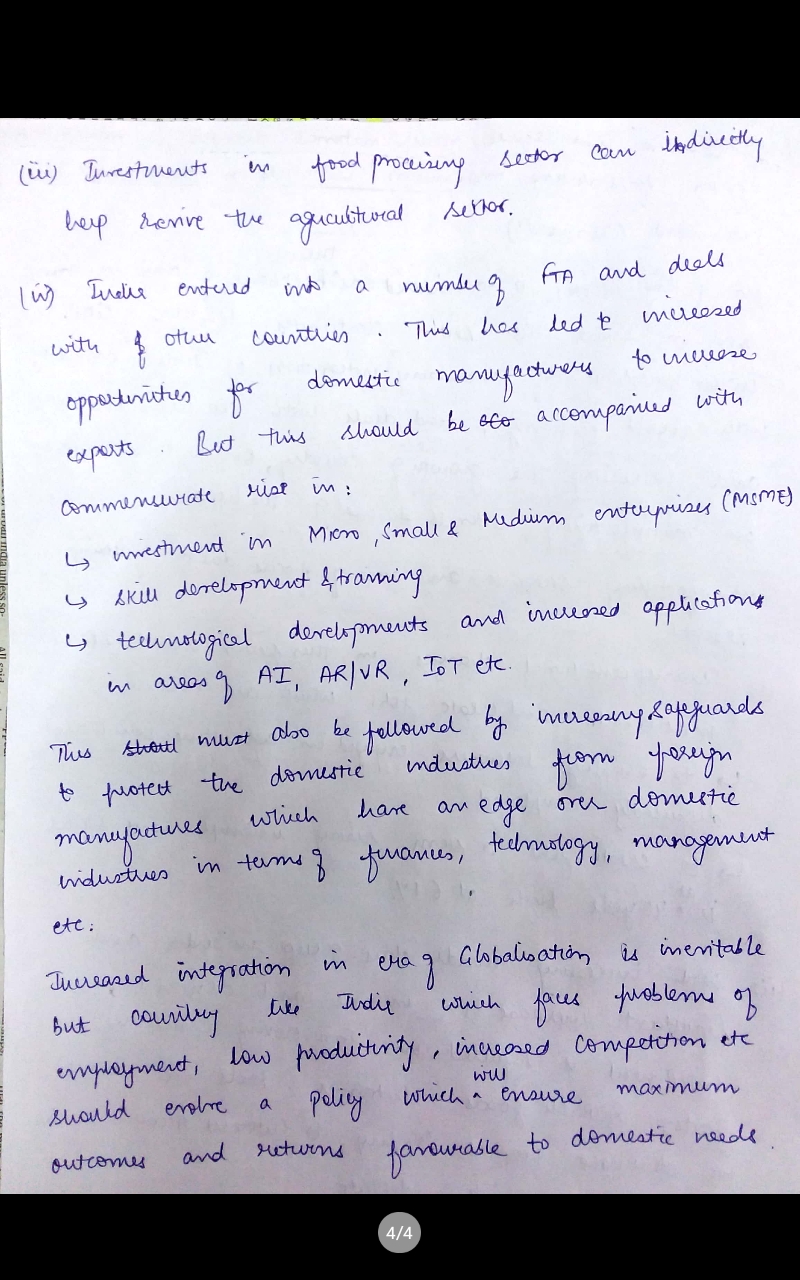 (iii) Investments in food procesing sector can indirectly
help revive the agricultural sector.
(iv) India entered into a number of FTA and deals
with of other countries. This has led to increased
opportunities for domestic manufacturers to increase
exports. But this should be accompanied with
commensurate rise in:
↳ investment in Micro, Small & Medium enterprises (MSME)
↳ skill development & training
↳ technological developments and increased applications
in areas of AI, AR/VR, IoT etc.
This must also be followed by increasing safeguards
to protect the domestic industries from foreign
manufactures which have an edge over domestic
industries in terms of finances, technology, management
etc.
Increased integration in era of Globalisation is inevitable
But country like India which faces problems of
employment, low productivity, increased competition etc
should evolve a policy which will ensure maximum
outcomes and returns favourable to domestic needs.
4/4